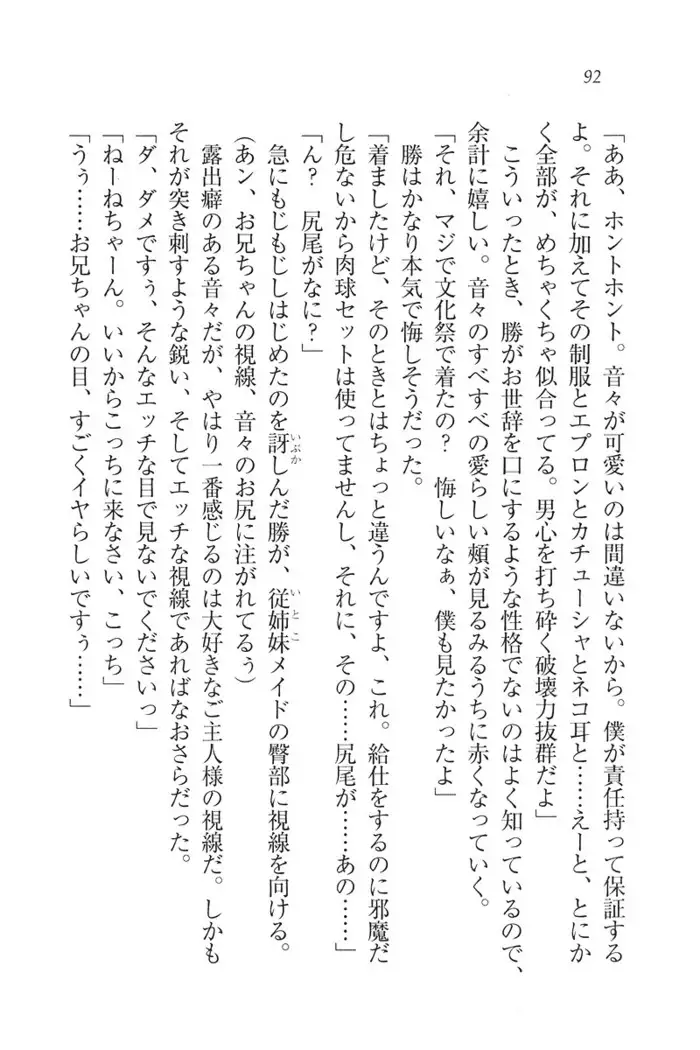 92
「ああ、ホントホント。音々が可愛いのは間違いないから。僕が責任持って保証する
よ。それに加えてその制服とエプロンとカチューシャとネコ耳と……えーと、とにか
く全部が、めちゃくちゃ似合ってる。男心を打ち砕く破壊力抜群だよ」
こういったとき、勝がお世辞を口にするような性格でないのはよく知っているので、
余計に嬉しい。音々のすべすべの愛らしい頰が見るみるうちに赤くなっていく。
「それ、マジで文化祭で着たの？　悔しいなぁ、僕も見たかったよ」
勝はかなり本気で悔しそうだった。
「着ましたけど、そのときとはちょっと違うんですよ、これ。給仕をするのに邪魔だ
し危ないから肉球セットは使ってませんし、それに、その……尻尾が……あの……」
「ん？　尻尾がなに？」
急にもじもじしはじめたのを訝しんだ勝が、従姉妹メイドの臀部に視線を向ける。
（あン、お兄ちゃんの視線、音々のお尻に注がれてるぅ）
露出癖のある音々だが、やはり一番感じるのは大好きなご主人様の視線だ。しかも
それが突き刺すような鋭い、そしてエッチな視線であればなおさらだった。
「ダ、ダメですぅ、そんなエッチな目で見ないでくださいっ」
「ねーねちゃーん。いいからこっちに来なさい、こっち」
「うぅ……お兄ちゃんの目、すごくイヤらしいですぅ……」